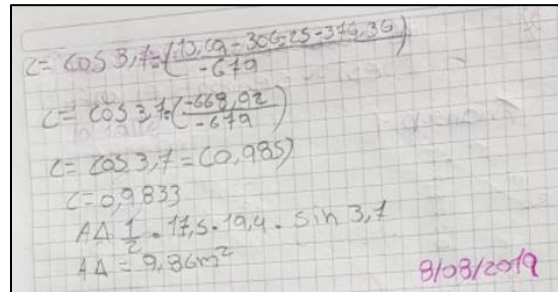 C= COS 3,7=(13,69-306,25-376,36)/-679
C= COS 3,7=(-668,92/-679)
C= COS 3,7=(0,985)
C=0,9833
AΔ 1/2 • 17,5 • 19,4 • sin 3,7
AΔ = 9,86m²
8/08/2019